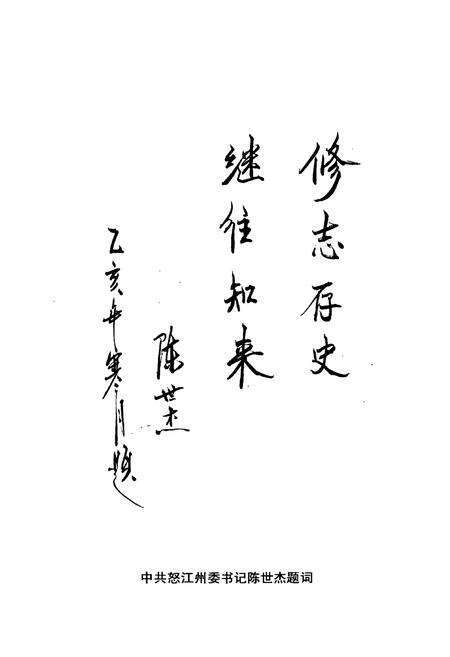 修志存史
继往知来
陈世杰
乙亥年寒月题
中共怒江州委书记陈世杰题词